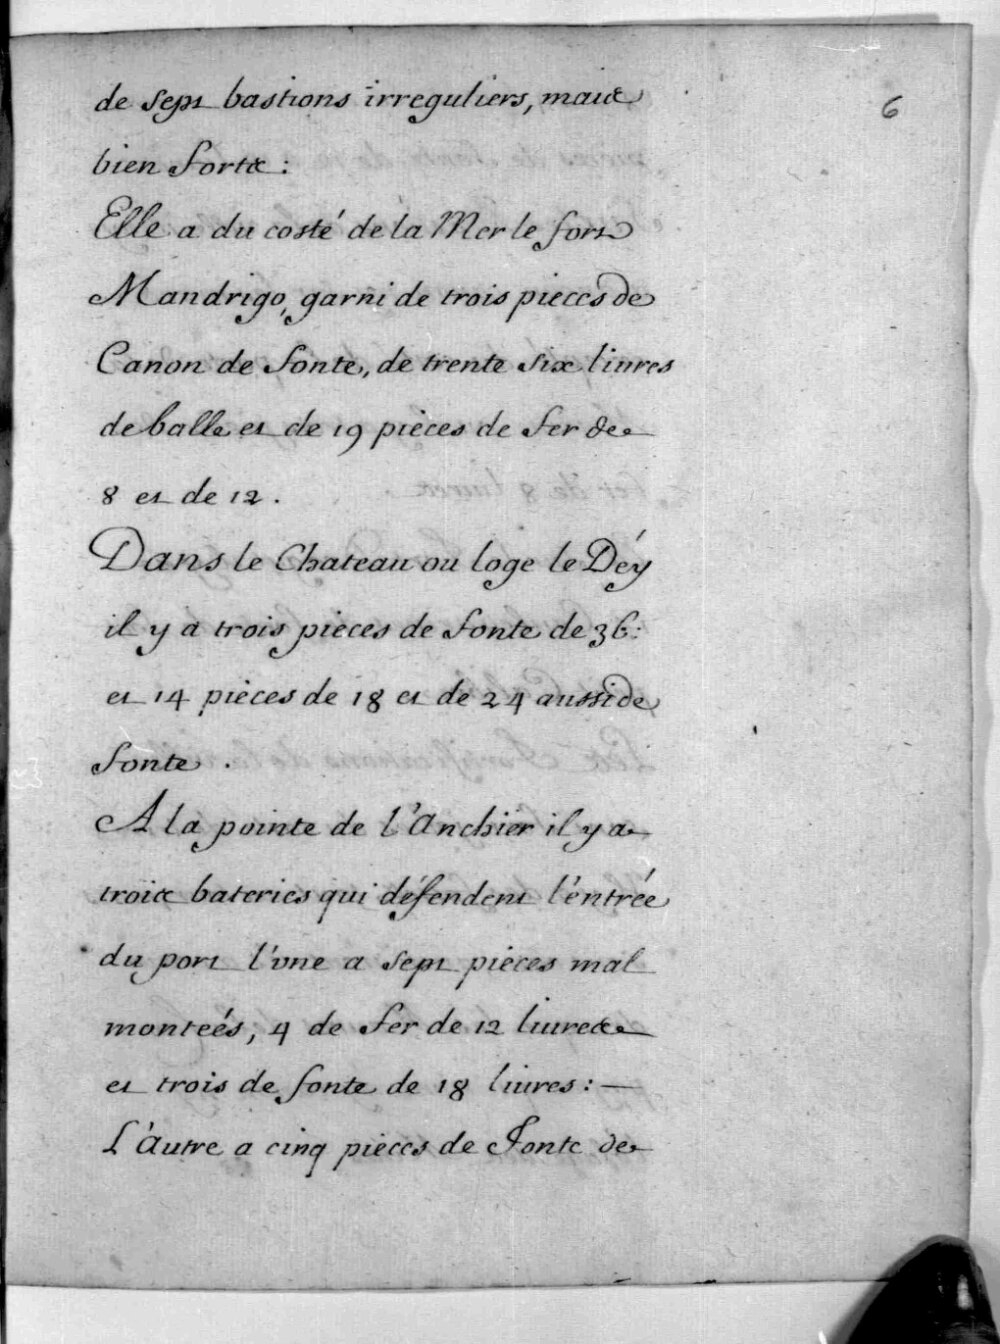 6
de sept bastions irreguliers, maix
bien fortx :
Elle a du costé de la Mer le fort
Mandrigo, garni de trois pieces de
Canon de fonte, de trente six livres
de balle et de 19 pièces de fer de
8 et de 12 .
Dans le Chateau ou loge le Déy
il y a trois pieces de fonte de 36:
et 14 pièces de 18 et de 24 aussi de
fonte .
A la pointe de l'Anchier il y a
troix bateries qui défendent l'entrée
du port l'vne a sept pièces mal
monteés, 4 de fer de 12 liurex
et trois de fonte de 18 liures : —
L'Autre a cinq pieces de Fonte de